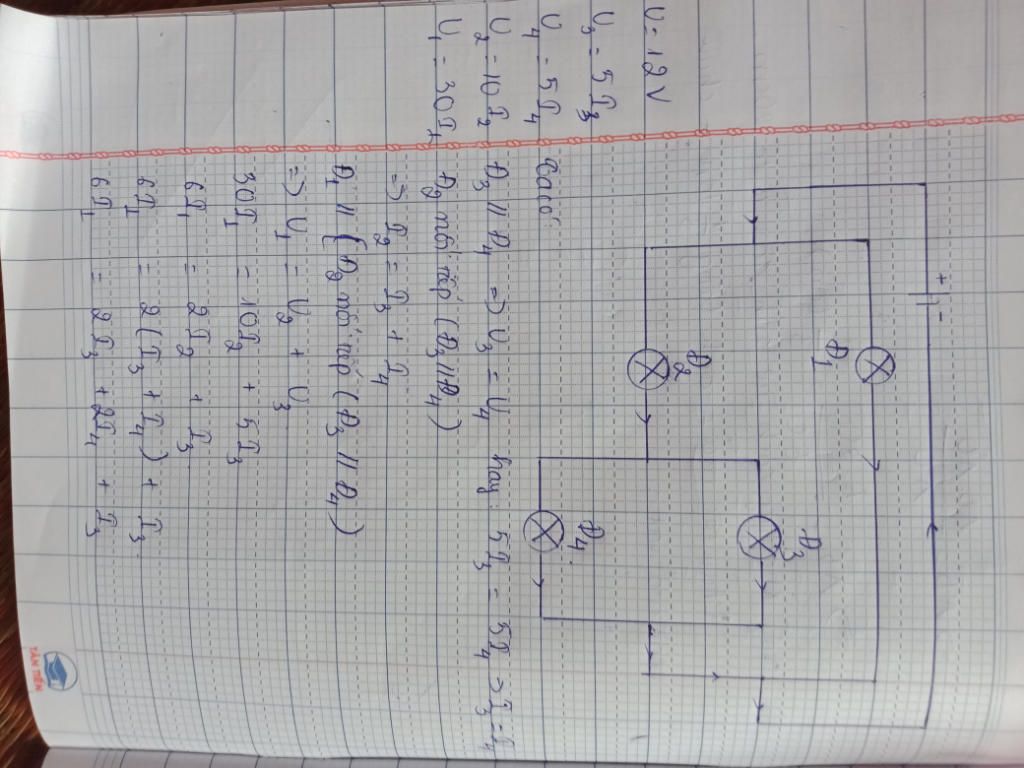 + -
Đ1
Đ2
Đ3
Đ4
U = 12V
U3 = 5I3
U4 = 5I4
U2 = 10I2
U1 = 30I1
Đ3 // Đ4 => U3 = U4 hay: 5I3 = 5I4 => I3 = I4
Đ2 nối tiếp (Đ3 // Đ4)
=> I2 = I3 + I4
Đ1 // (Đ2 nối tiếp (Đ3 // Đ4)
=> U1 = U2 + U3
30I1 = 10I2 + 5I3
6I1 = 2I2 + I3
6I1 = 2(I3 + I4) + I3
6I1 = 2I3 + 2I4 + I3
TÂN TIẾN